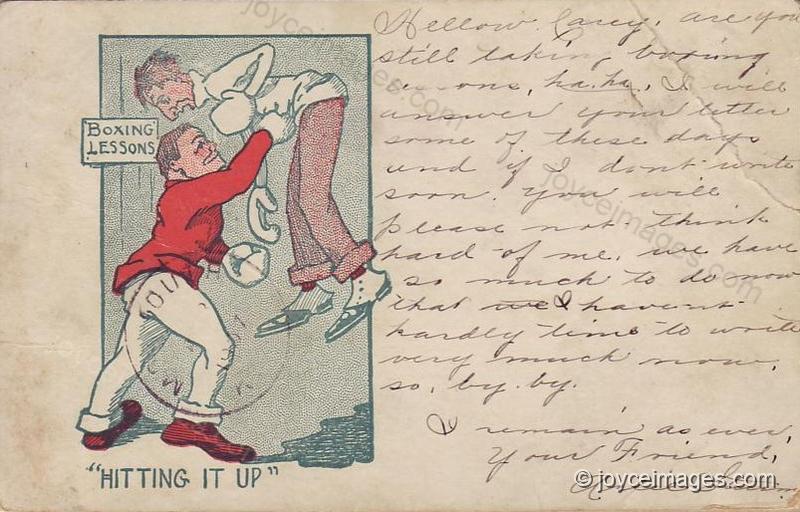 BOXING
LESSONS
"HITTING IT UP"
Hellow Carey, are you
still taking boxing
lessons, ha. ha. I will
answer your letter
some of these days
and if I dont write
soon. you will
please not think
hard of me. we have
so much to do now
that we I havent
hardly time to write
very much now.
so, by. by.
I remain as ever,
Your Friend,
joyceimages.com
joyceimages.com
joyceimages.com
© joyceimages.com